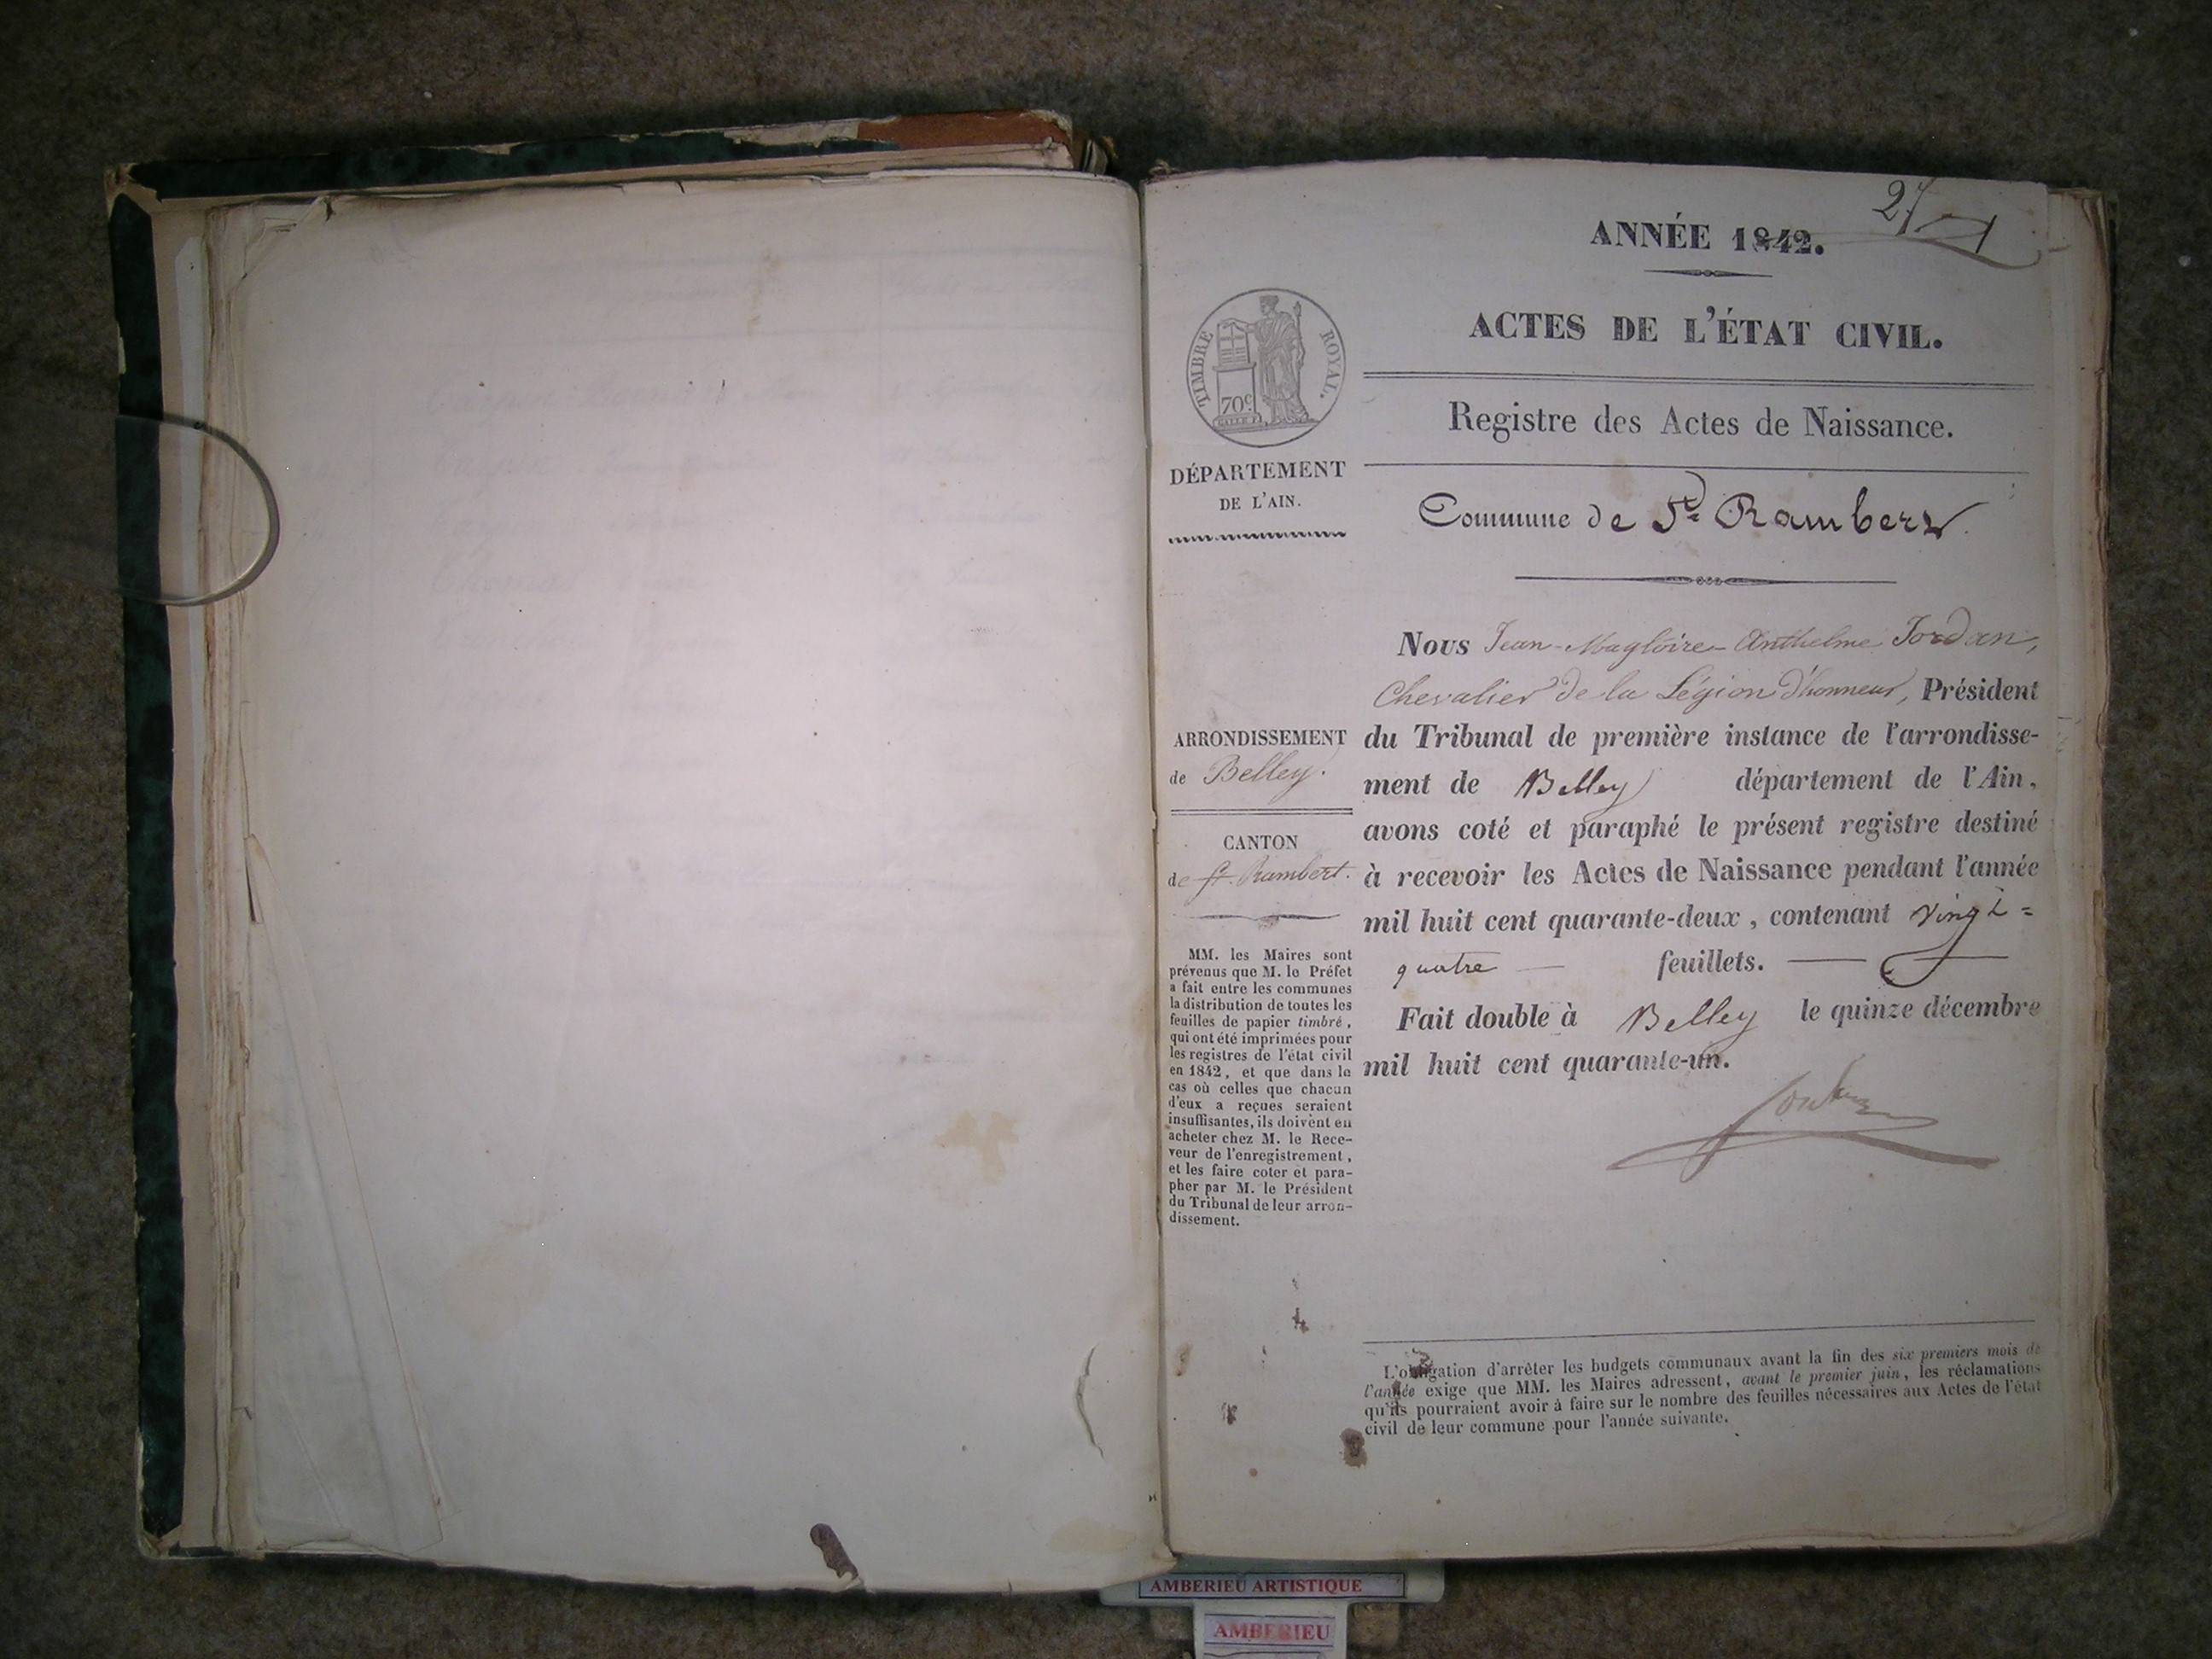 ANNÉE 1842.
ACTES DE L'ÉTAT CIVIL.
Registre des Actes de Naissance.
Commune de St Rambert
TIMBRE ROYAL.
70c
DÉPARTEMENT
DE L'AIN.
ARRONDISSEMENT
de Belley.
CANTON
de St. Rambert.
MM. les Maires sont
prévenus que M. le Préfet
a fait entre les communes
la distribution de toutes les
feuilles de papier timbré,
qui ont été imprimées pour
les registres de l'état civil
en 1842, et que dans le
cas où celles que chacun
d'eux a reçues seraient
insuffisantes, ils doivent en
acheter chez M. le Rece-
veur de l'enregistrement,
et les faire coter et para-
pher par M. le Président
du Tribunal de leur arron-
dissement.
Nous Jean-Magloire-Anthelme Jordan,
Chevalier de la Légion d'honneur, Président
du Tribunal de première instance de l'arrondisse-
ment de Belley département de l'Ain,
avons coté et paraphé le présent registre destiné
à recevoir les Actes de Naissance pendant l'année
mil huit cent quarante-deux, contenant vingt=
quatre feuillets.
Fait double à Belley le quinze décembre
mil huit cent quarante-un.
Jordan
L'obligation d'arrêter les budgets communaux avant la fin des six premiers mois de
l'année exige que MM. les Maires adressent, avant le premier juin, les réclamations
qu'ils pourraient avoir à faire sur le nombre des feuilles nécessaires aux Actes de l'état
civil de leur commune pour l'année suivante.
AMBERIEU ARTISTIQUE
AMBERIEU